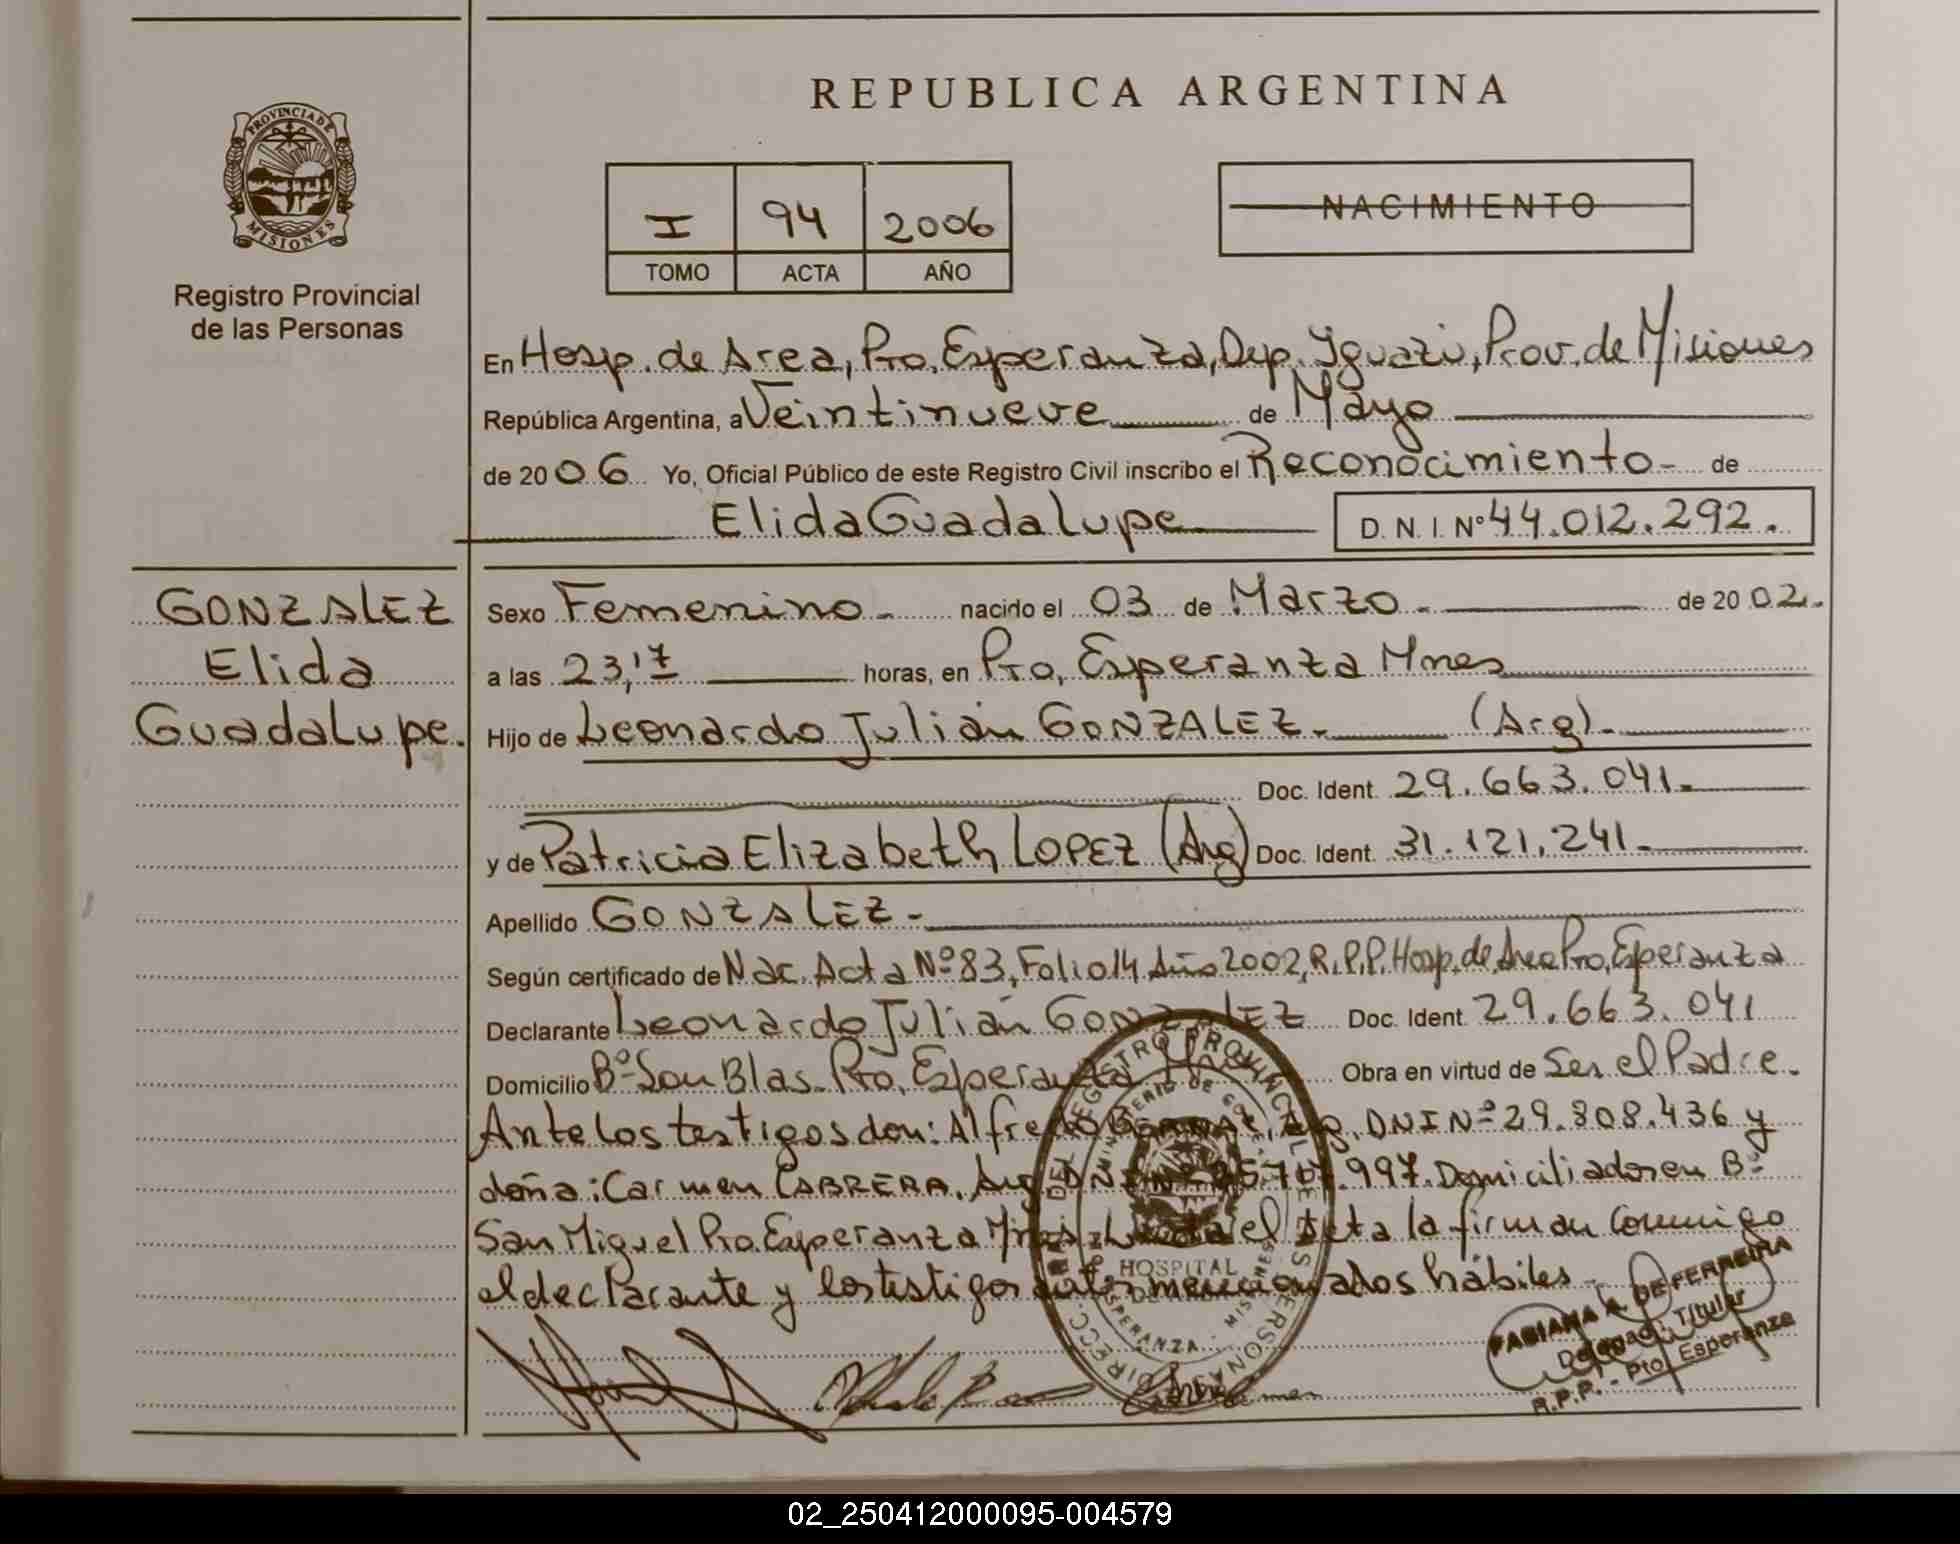 REPUBLICA ARGENTINA
PROVINCIA DE MISIONES
Registro Provincial
de las Personas
I 94 2006
TOMO ACTA AÑO
NACIMIENTO
En Hosp. de Area, Pto. Esperanza, Dep. Iguazú, Prov. de Misiones
República Argentina, a Veintinueve de Mayo
de 2006 Yo, Oficial Público de este Registro Civil inscribo el Reconocimiento - de
Elida Guadalupe D. N. I. Nº 44.012.292.
GONZALEZ
Elida
Guadalupe.
Sexo Femenino - nacido el 03 de Marzo - de 2002.
a las 23,17 horas, en Pto. Esperanza Mnes
Hijo de Leonardo Julián GONZALEZ. (Arg).
Doc. Ident. 29.663.041.
y de Patricia Elizabeth LOPEZ (Arg) Doc. Ident. 31.121.241.
Apellido GONZALEZ -
Según certificado de Nac. Acta Nº 83, Folio 14 Año 2002, R.P.P. Hosp. de Area Pto. Esperanza
Declarante Leonardo Julián GONZALEZ Doc. Ident. 29.663.041
Domicilio Bº San Blas - Pto. Esperanza Obra en virtud de Ser el Padre.
Ante los testigos don: Alfredo Arg. DNI Nº 29.808.436 y
doña: Carmen CABRERA, Arg DNI Nº .997. Domiciliados en Bº
San Miguel Pto. Esperanza Mnes. el Acta la firman conmigo
el declarante y los testigos antes mencionados hábiles -
HOSPITAL
DE AREA
FABIANA A. DE FERREIRA
Delegada Titular
R.P.P. - Pto. Esperanza
02_250412000095-004579